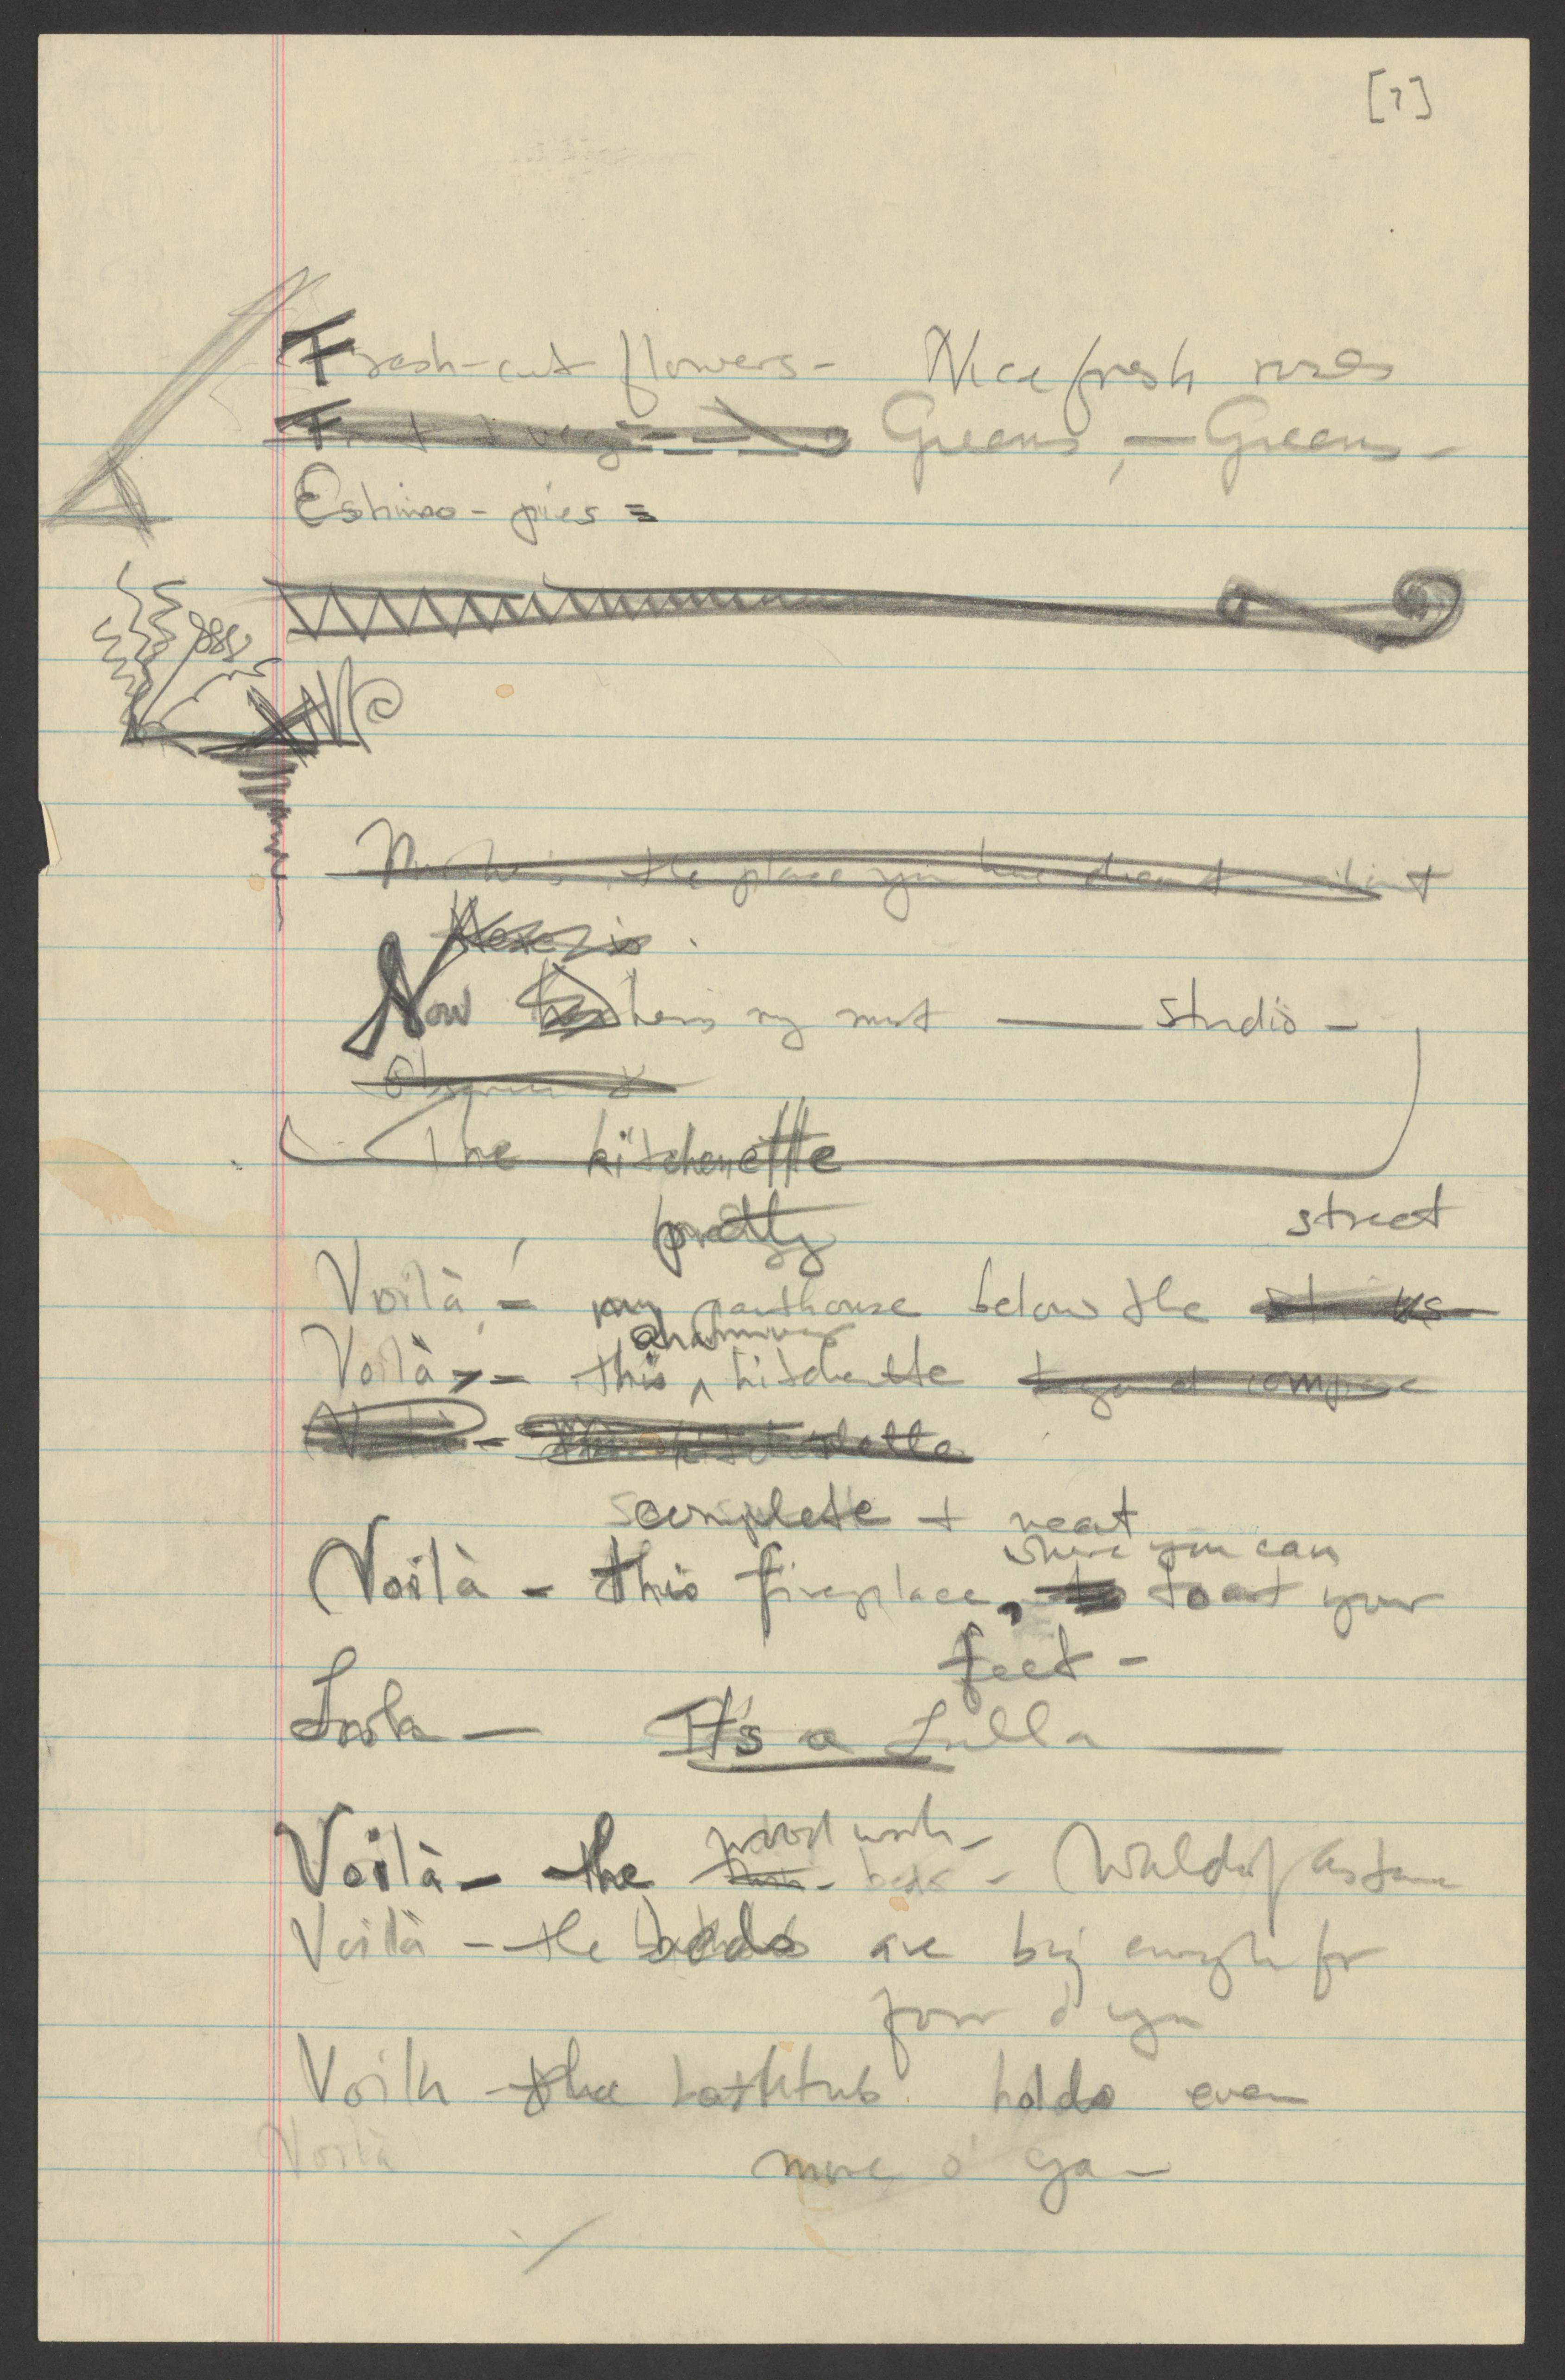 [7]
Fresh-cut flowers - Nice fresh roses
Fruit & veg Greens, — Greens -
Eskimo - pies =
the place you
Here is
Now here's my most ——— studio -
The kitchenette
pretty street
Voilà - my penthouse below the
Voilà - this kitchenette
complete + neat
where you can
Voilà - this fireplace, to toast your
feet -
Look — It's a Lulla ———
wood work -
Voilà - the beds - Waldorf Astoria
Voilà - the beds are big enough for
four o' ya
Voila - the bathtub holds even
more o' ya -
Voilà